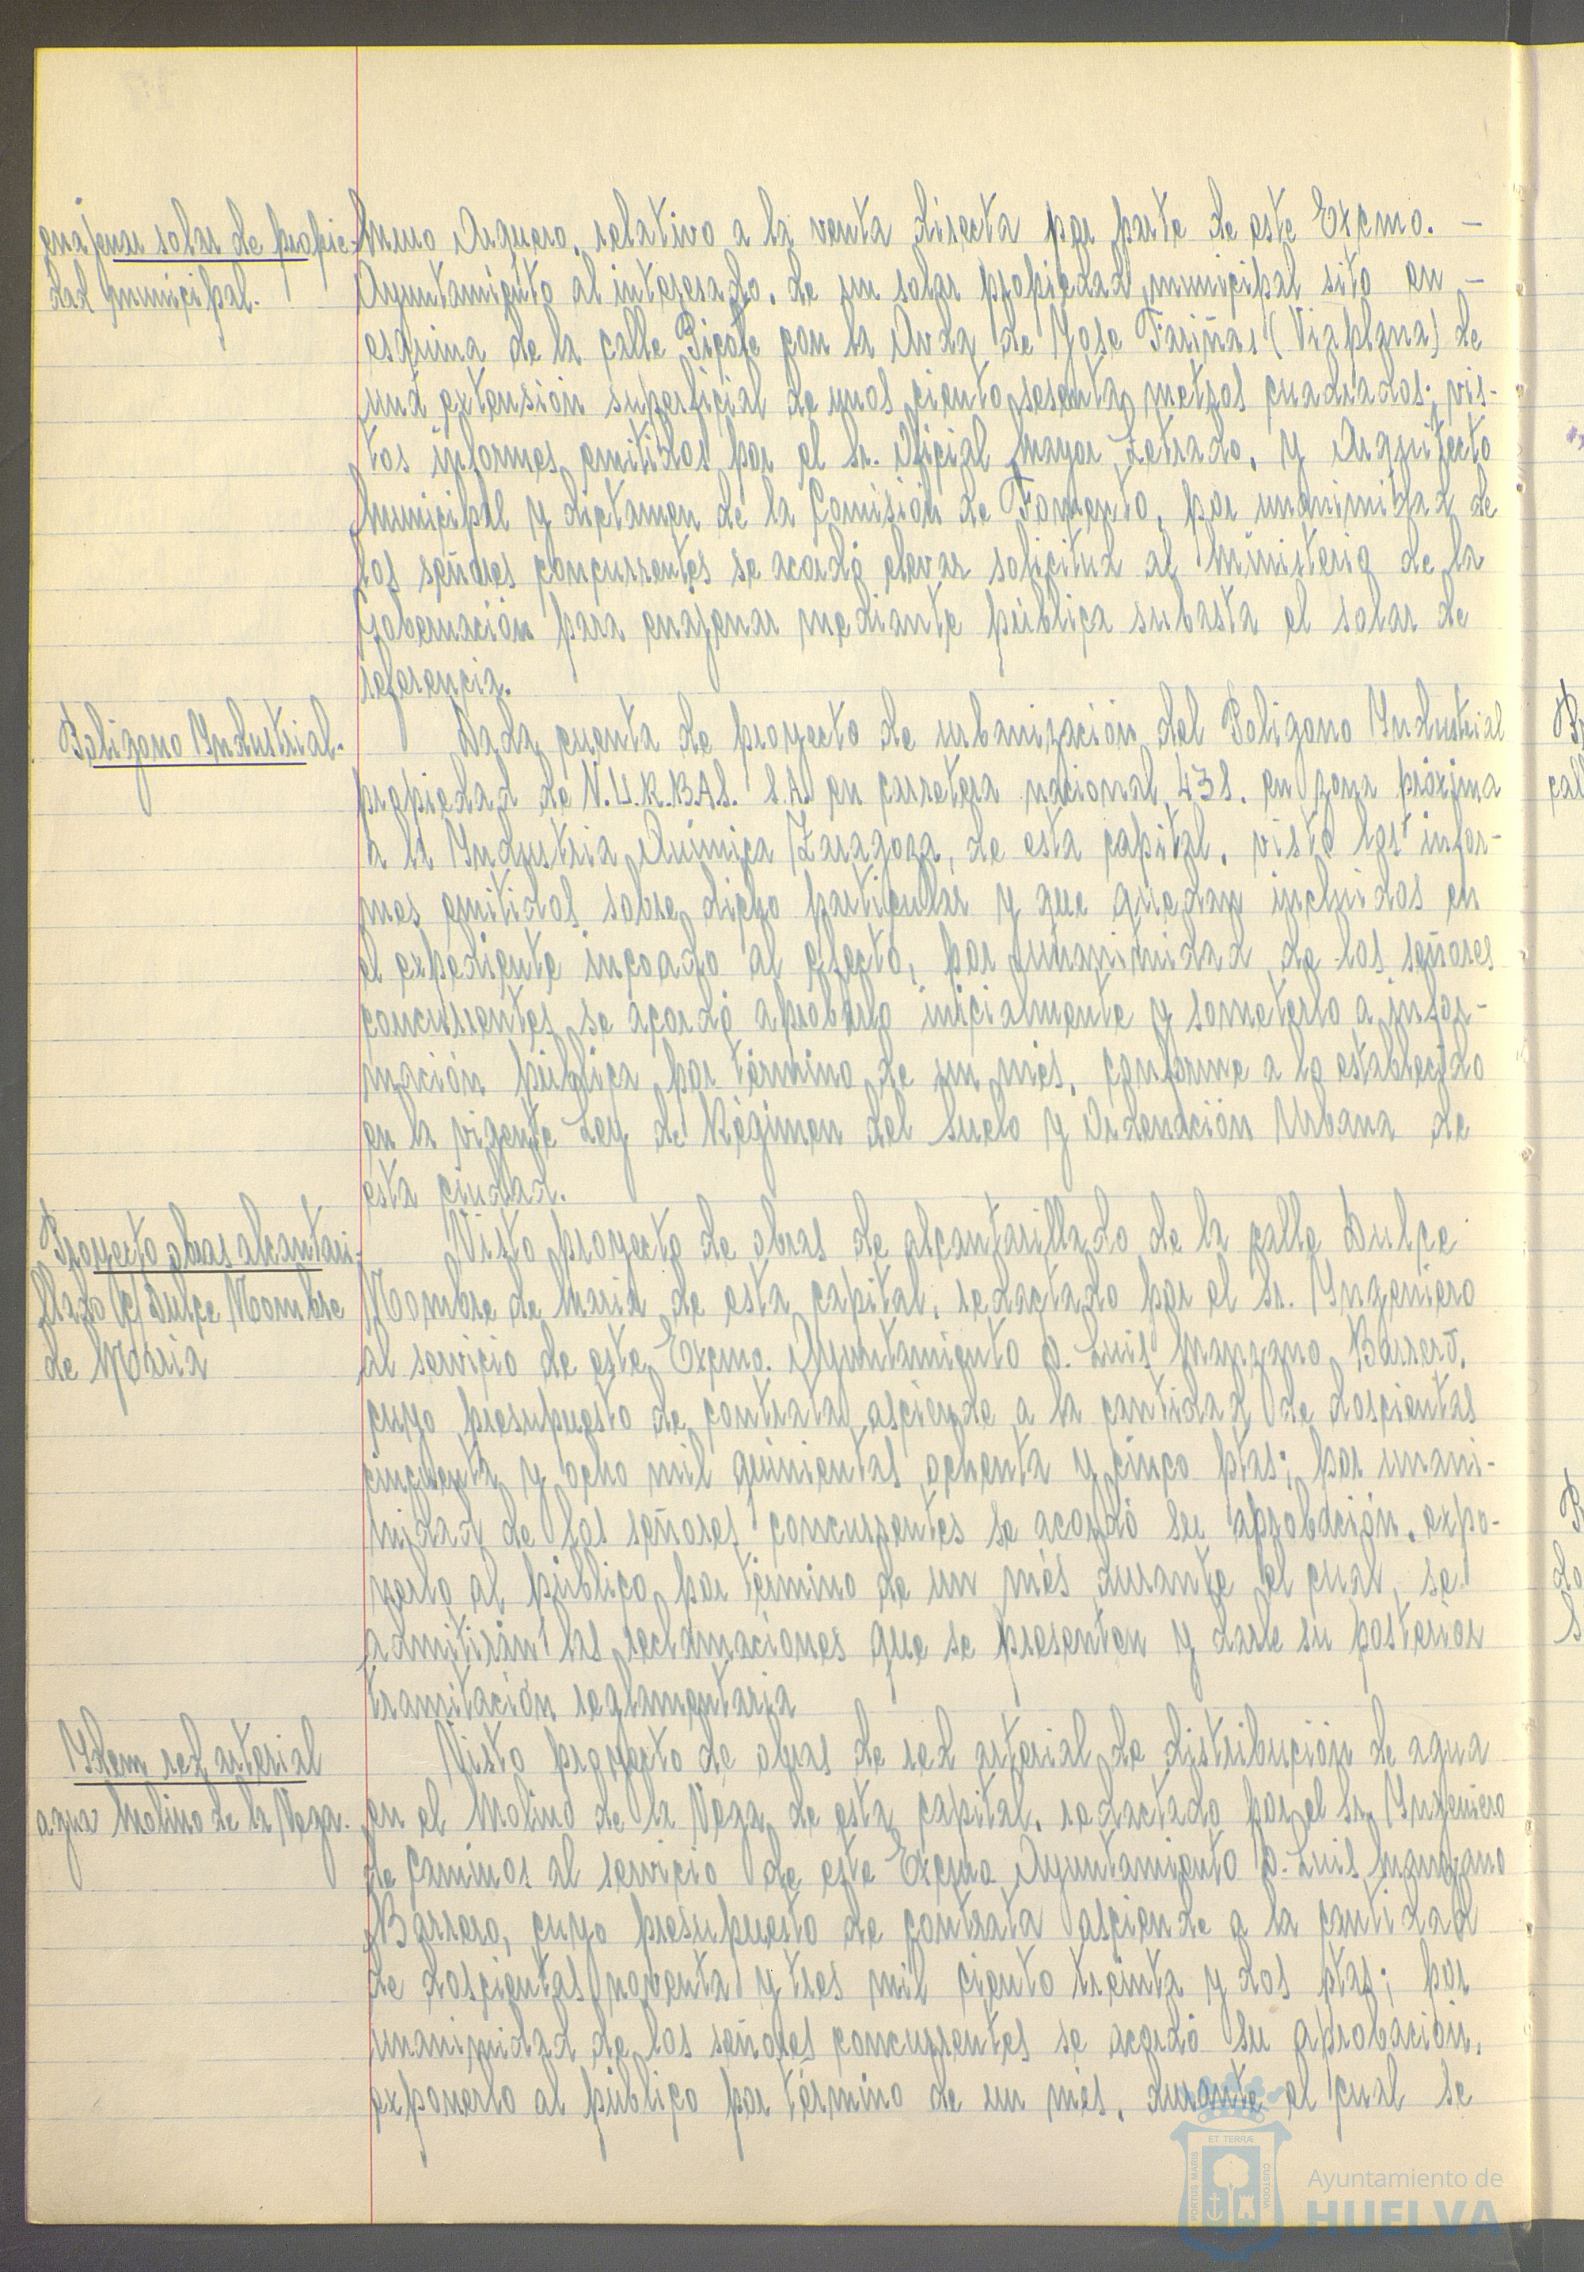 enajenar solar de propie-
dad municipal.
relativo a la venta directa por parte de este Excmo. –
Ayuntamiento al interesado, de un solar propiedad municipal sito en –
esquina de la calle con la Avda de Jose Fariñas (Viaplana) de
una extensión superficial de unos ciento sesenta metros cuadrados; vis-
tos informes emitidos por el Sr. Oficial Mayor Letrado, y Arquitecto
Municipal y dictamen de la Comisión de Fomento, por unanimidad de
los señores concurrentes se acordó elevar solicitud al Ministerio de la
Gobernación para enajenar mediante pública subasta el solar de
referencia.
Poligono Industrial.
Dada cuenta de proyecto de urbanización del Poligono Industrial
propiedad de S.A. en carretera nacional 438. en zona próxima
a la Industria Química Zaragoza, de esta capital, visto los infor-
mes emitidos sobre dicho particular y que quedan incluidos en
el expediente incoado al efecto, por unanimidad de los señores
concurrentes se acordó aprobarlo inicialmente y someterlo a infor-
mación pública por término de un mes, conforme a lo establecido
en la vigente Ley de Régimen del Suelo y Ordenación Urbana de
esta ciudad.
Proyecto obras alcantari-
llado c/ Dulce Nombre
de Maria
Visto proyecto de obras de alcantarillado de la calle Dulce
Nombre de Maria de esta capital, redactado por el Sr. Ingeniero
al servicio de este Excmo. Ayuntamiento D. Luis Manzano Barrero,
cuyo presupuesto de contrata asciende a la cantidad de doscientas
cincuenta y ocho mil quinientas ochenta y cinco ptas; por unani-
midad de los señores concurrentes se acordó su aprobación, expo-
nerlo al público por término de un més durante el cual, se
admitirán las reclamaciones que se presenten y darle su posterior
tramitación reglamentaria
Idem red arterial
agua Molino de la Vega.
Visto proyecto de obras de red arterial de distribución de agua
en el Molino de la Vega de esta capital, redactado por el Sr. Ingeniero
de Caminos al servicio de este Excmo Ayuntamiento D. Luis Manzano
Barrero, cuyo presupuesto de contrata asciende a la cantidad
de doscientas noventa y tres mil ciento treinta y dos ptas; por
unanimidad de los señores concurrentes se acordó su aprobación,
exponerlo al público por término de un més, durante el cual se
ET TERRÆ
PORTUS MARIS
CUSTODIA
Ayuntamiento de
HUELVA